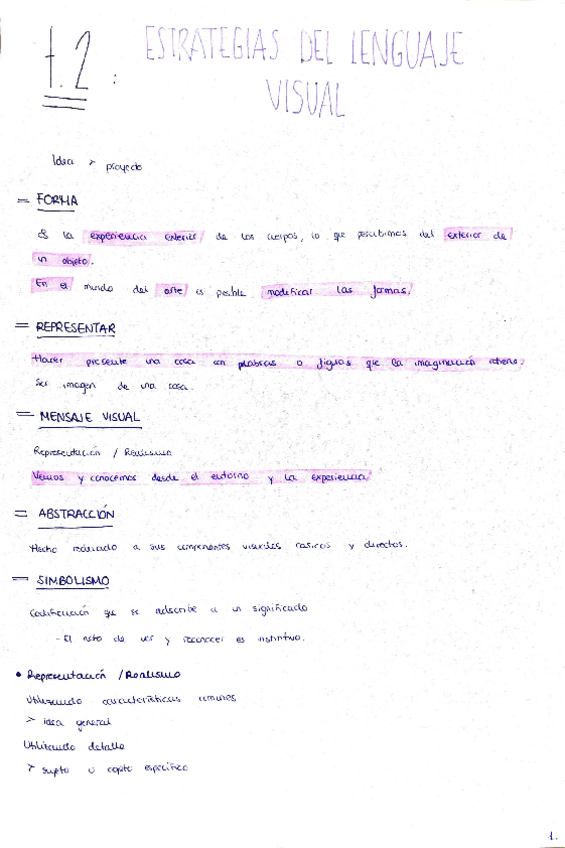 t.2: ESTRATEGIAS DEL LENGUAJE
VISUAL
Idea > proyecto
= FORMA
Es la experiencia exterior de los cuerpos, lo que percibimos del exterior de
un objeto.
En el mundo del arte es posible modificar las formas.
= REPRESENTAR
Hacer presente una cosa con palabras o figuras que la imaginación retiene.
Ser imagen de una cosa.
= MENSAJE VISUAL
Representación / Realismo
Vemos y conocemos desde el entorno y la experiencia
= ABSTRACCIÓN
Hecho reducido a sus componentes visuales básicos y directos.
= SIMBOLISMO
Codificación que se adscribe a un significado
- El acto de ver y reconocer es instintivo.
• Representación / Realismo
Utilizando características comunes
> idea general
Utilizando detalle
> sujeto u objeto específico
1.